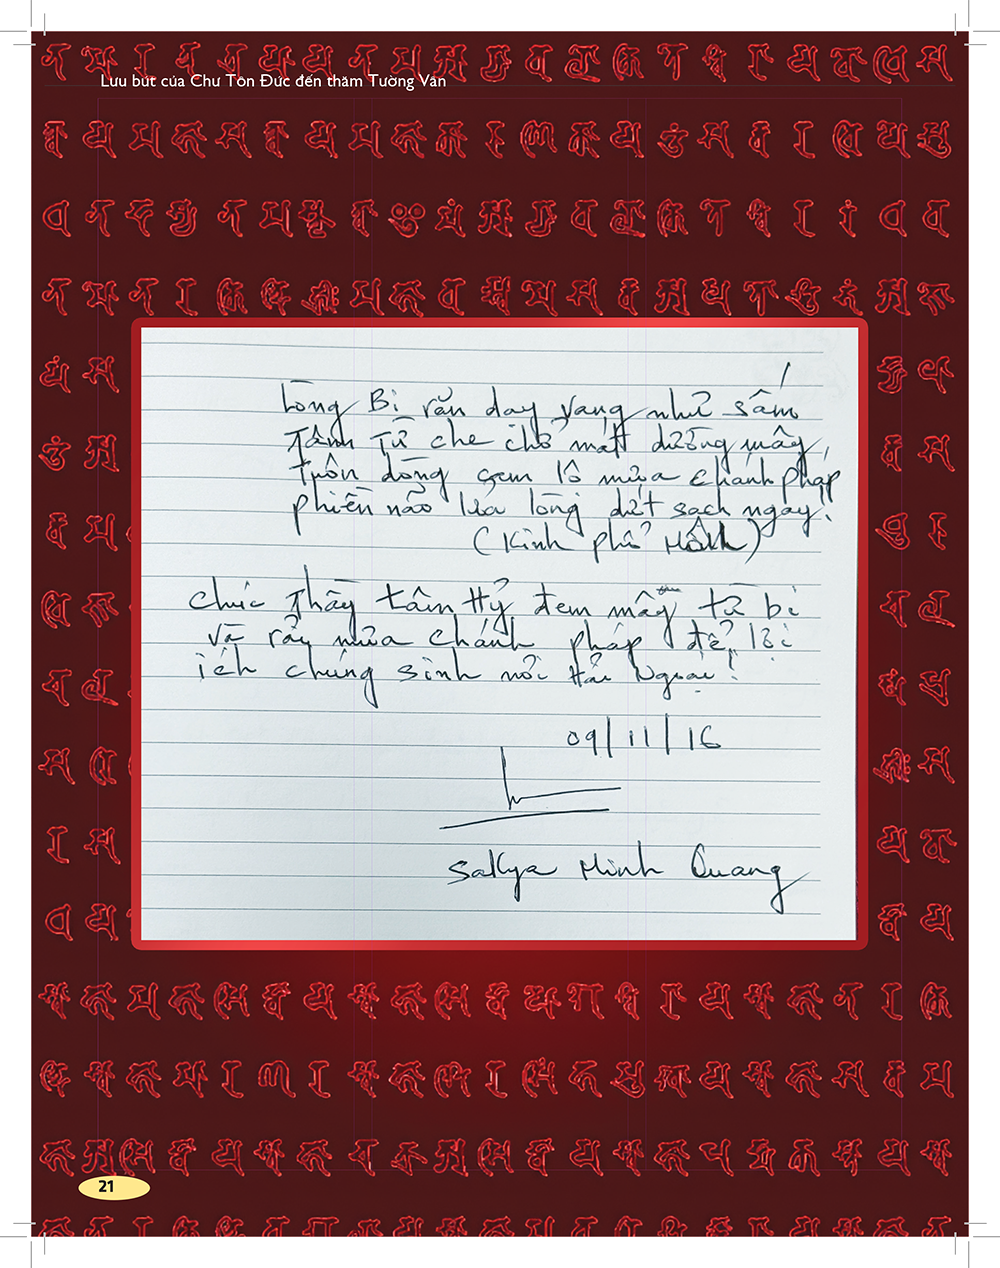 Lưu bút của Chư Tôn Đức đến thăm Tường Vân
Lòng Bi răn dạy vang như sấm
Tâm Từ che chở mát dường mây,
tuôn dòng cam lồ mưa chánh pháp
phiền não lửa lòng dứt sạch ngay!
(Kinh phổ Môn)
Chúc Thầy tâm Hỷ đem mây từ bi
và rảy mưa chánh pháp để lợi
ích chúng sinh nơi Hải Ngoại!
09/11/16
Sakya Minh Quang
21